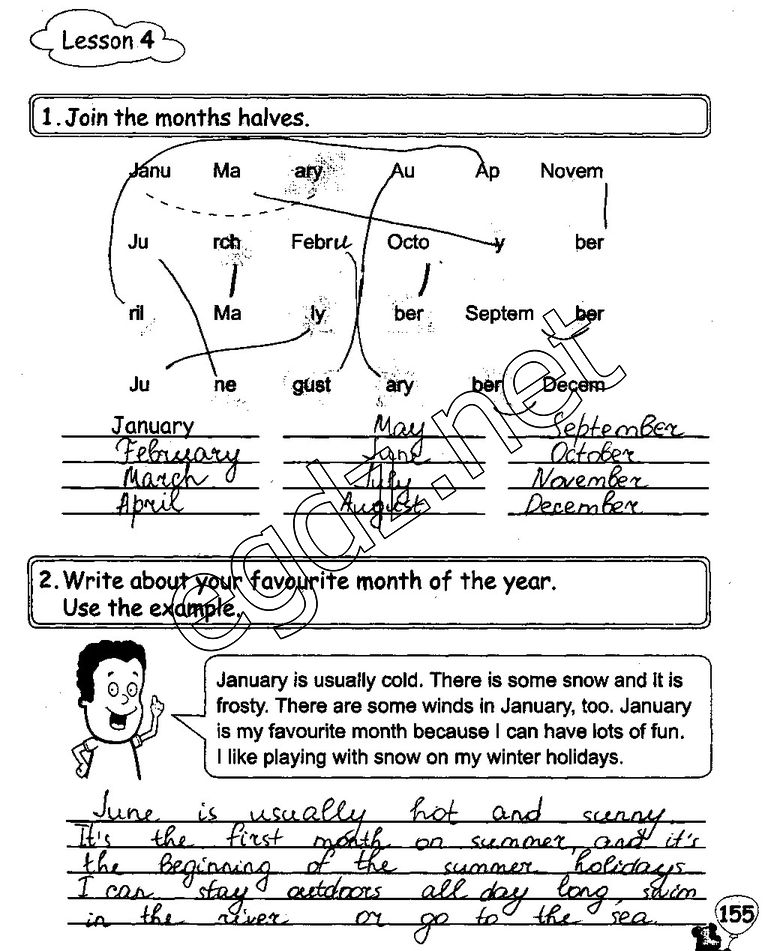 Lesson 4
1. Join the months halves.
Janu Ma ary Au Ap Novem
Ju rch Febru Octo y ber
ril Ma ly ber Septem ber
Ju ne gust ary ber Decem
January May September
February June October
March July November
April August December
2. Write about your favourite month of the year.
Use the example.
January is usually cold. There is some snow and it is
frosty. There are some winds in January, too. January
is my favourite month because I can have lots of fun.
I like playing with snow on my winter holidays.
June is usually hot and sunny.
It's the first month on summer, and it's
the beginning of the summer holidays
I can stay outdoors all day long, swim
in the river or go to the sea.
155
egdz.net